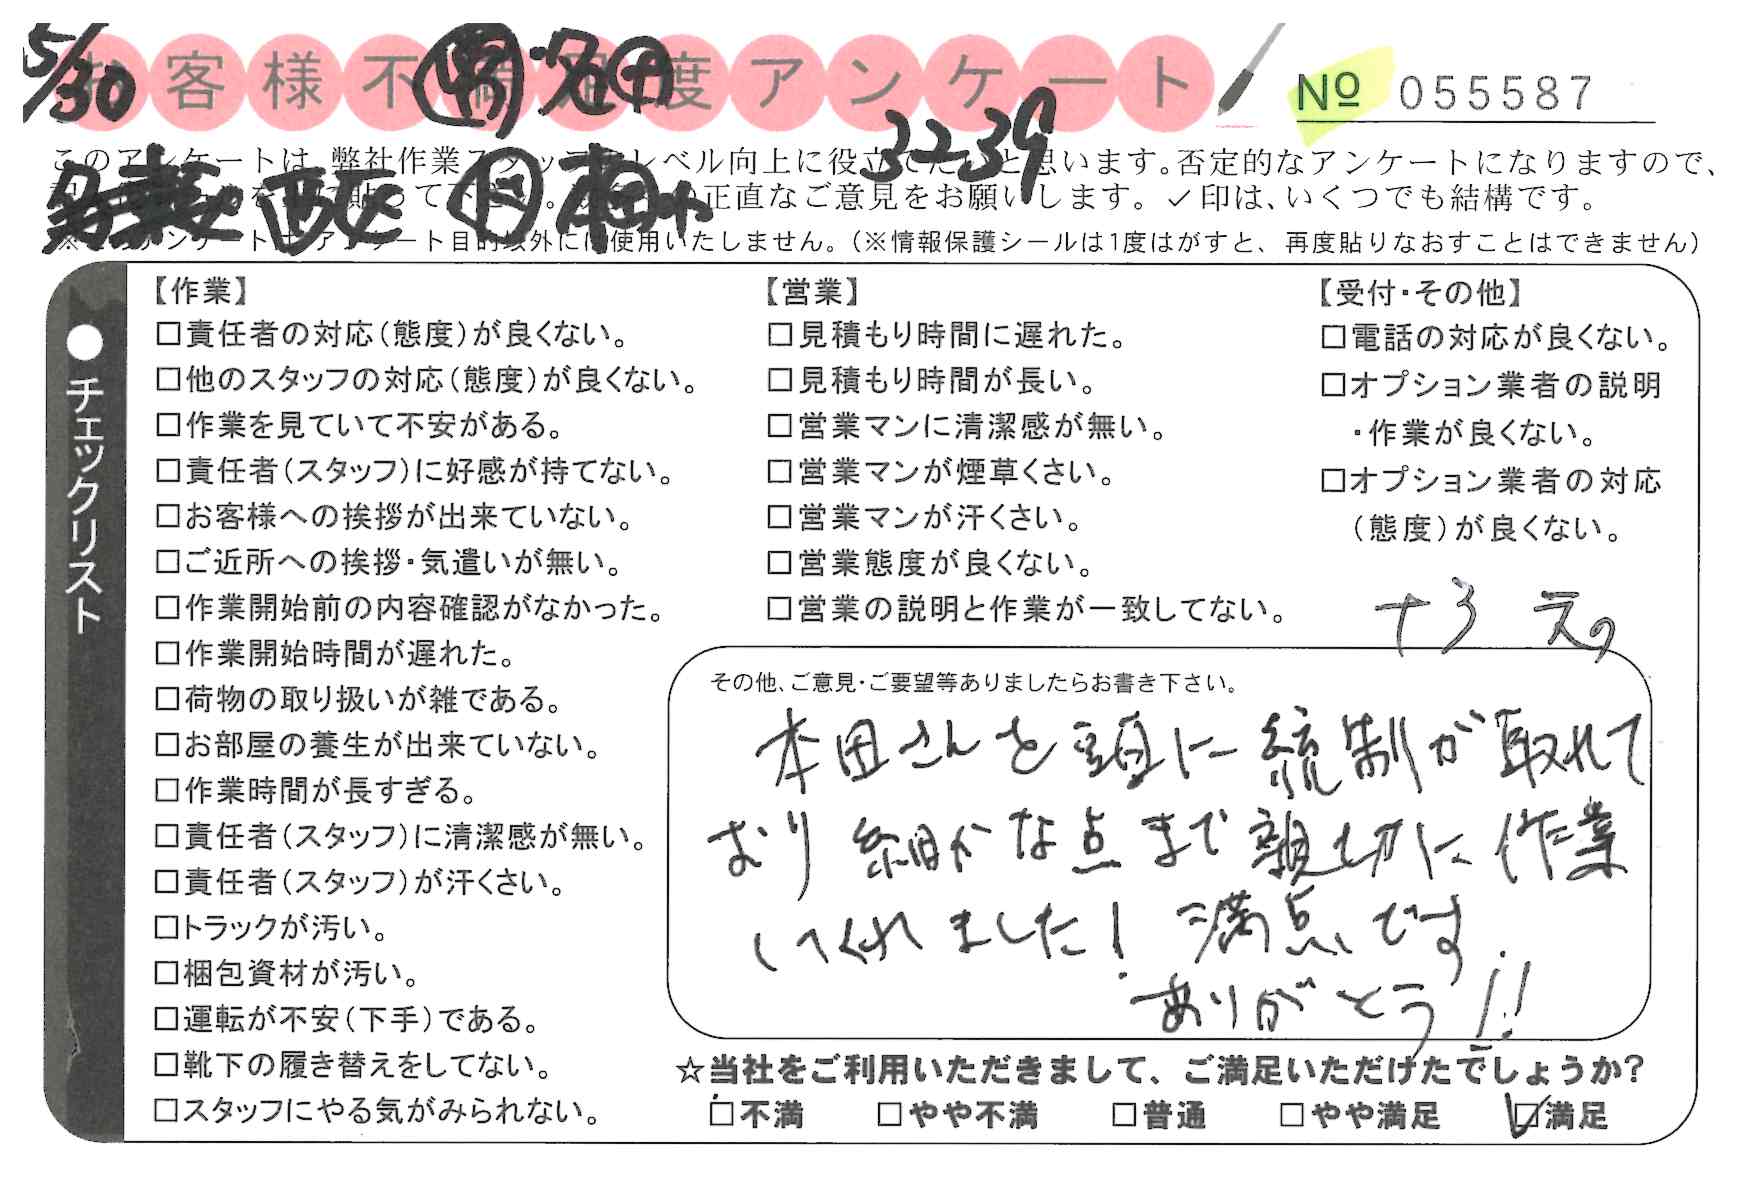 5/30
お客様不満足度アンケート
№ 055587
3239
このアンケートは、弊社作業スタッフのレベル向上に役立てたいと思います。否定的なアンケートになりますので、
正直なご意見をお願いします。✓印は、いくつでも結構です。
※このアンケートは、アンケート目的以外には使用いたしません。(※情報保護シールは1度はがすと、再度貼りなおすことはできません)
●チェックリスト
【作業】
□責任者の対応(態度)が良くない。
□他のスタッフの対応(態度)が良くない。
□作業を見ていて不安がある。
□責任者(スタッフ)に好感が持てない。
□お客様への挨拶が出来ていない。
□ご近所への挨拶・気遣いが無い。
□作業開始前の内容確認がなかった。
□作業開始時間が遅れた。
□荷物の取り扱いが雑である。
□お部屋の養生が出来ていない。
□作業時間が長すぎる。
□責任者(スタッフ)に清潔感が無い。
□責任者(スタッフ)が汗くさい。
□トラックが汚い。
□梱包資材が汚い。
□運転が不安(下手)である。
□靴下の履き替えをしてない。
□スタッフにやる気がみられない。
【営業】
□見積もり時間に遅れた。
□見積もり時間が長い。
□営業マンに清潔感が無い。
□営業マンが煙草くさい。
□営業マンが汗くさい。
□営業態度が良くない。
□営業の説明と作業が一致してない。
【受付・その他】
□電話の対応が良くない。
□オプション業者の説明
・作業が良くない。
□オプション業者の対応
(態度)が良くない。
その他、ご意見・ご要望等ありましたらお書き下さい。
本田さんを頭に統制が取れて
おり 細かな点まで親切に作業
してくれました! 満点です
ありがとう!!
☆当社をご利用いただきまして、ご満足いただけたでしょうか?
□不満 □やや不満 □普通 □やや満足 ☑満足